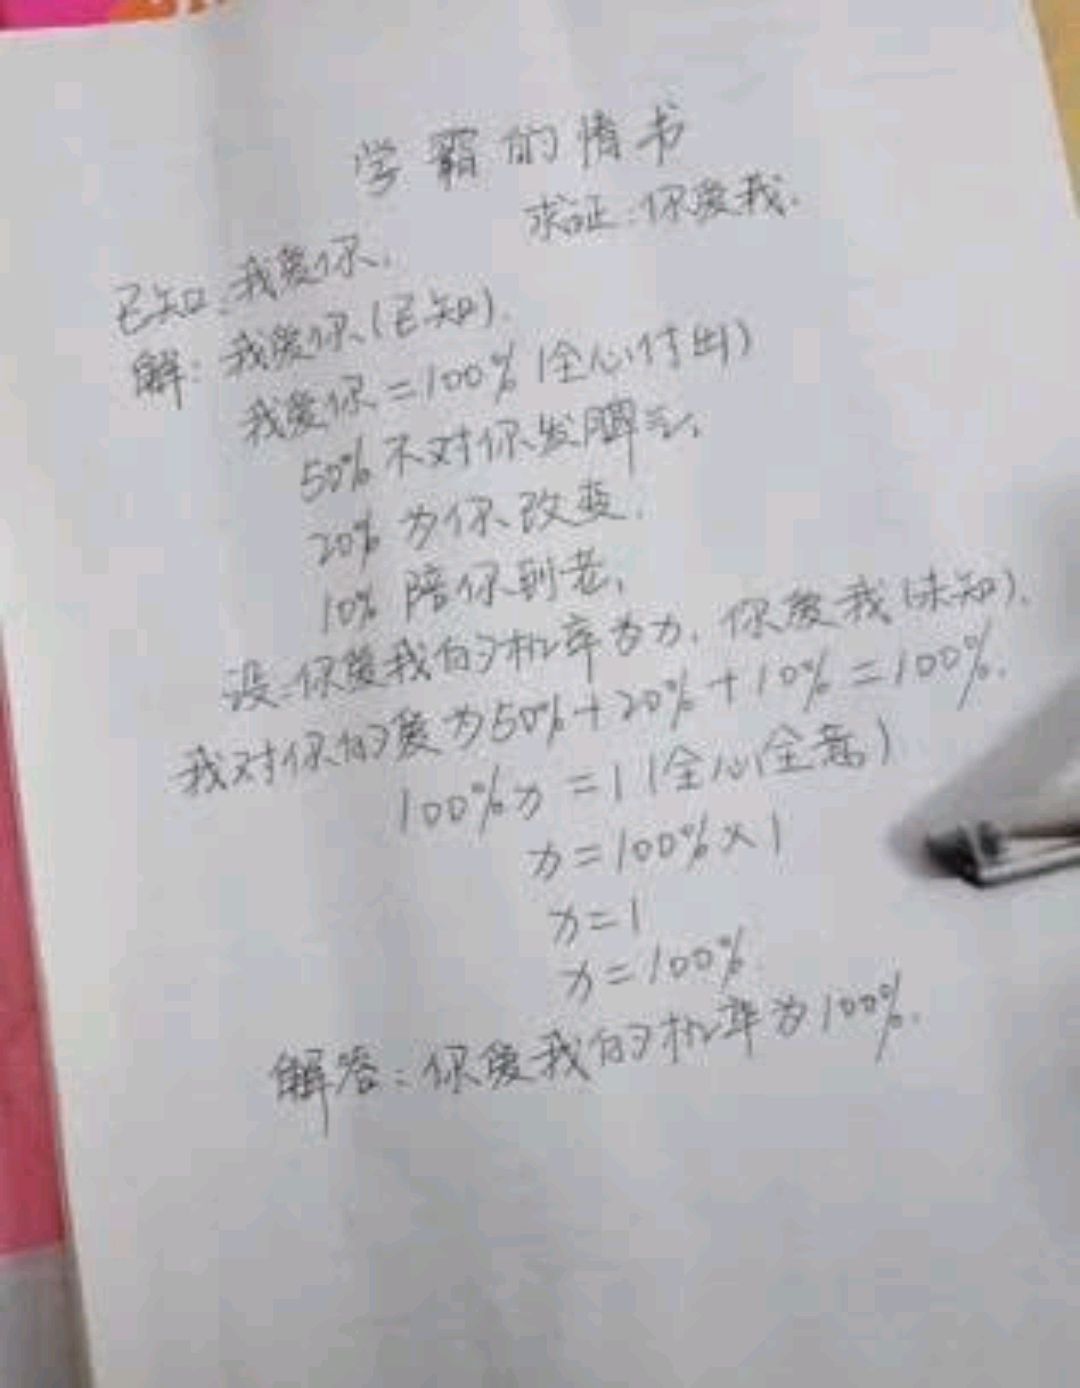 学霸的情书
求证:你爱我.
已知:我爱你.
解:我爱你(已知).
我爱你=100%(全心付出)
50%不对你发脾气.
20%为你改变.
10%陪你到老.
设:你爱我的机率为x.你爱我(未知).
我对你的爱为50%+20%+10%=100%.
100%x=1(全心全意)
x=100%×1
x=1
x=100%
解答:你爱我的机率为100%.